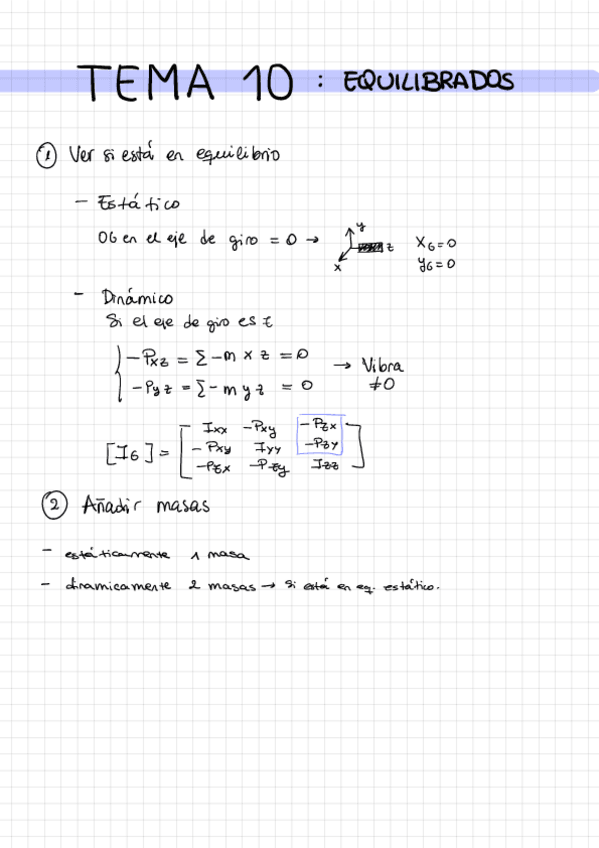 TEMA 10 : EQUILIBRADOS
① Ver si está en equilibrio
- Estático
OG en el eje de giro = 0 → y z x X_G=0
y_G=0
- Dinámico
Si el eje de giro es z
{ -Pxz = Σ -m x z = 0 → Vibra
-Pyz = Σ -m y z = 0 ≠0
[I_G] = [ Ixx -Pxy -Pzx
-Pxy Iyy -Pzy
-Pzx -Pzy Izz ]
② Añadir masas
- estáticamente 1 masa
- dinamicamente 2 masas → Si está en eq. estático.